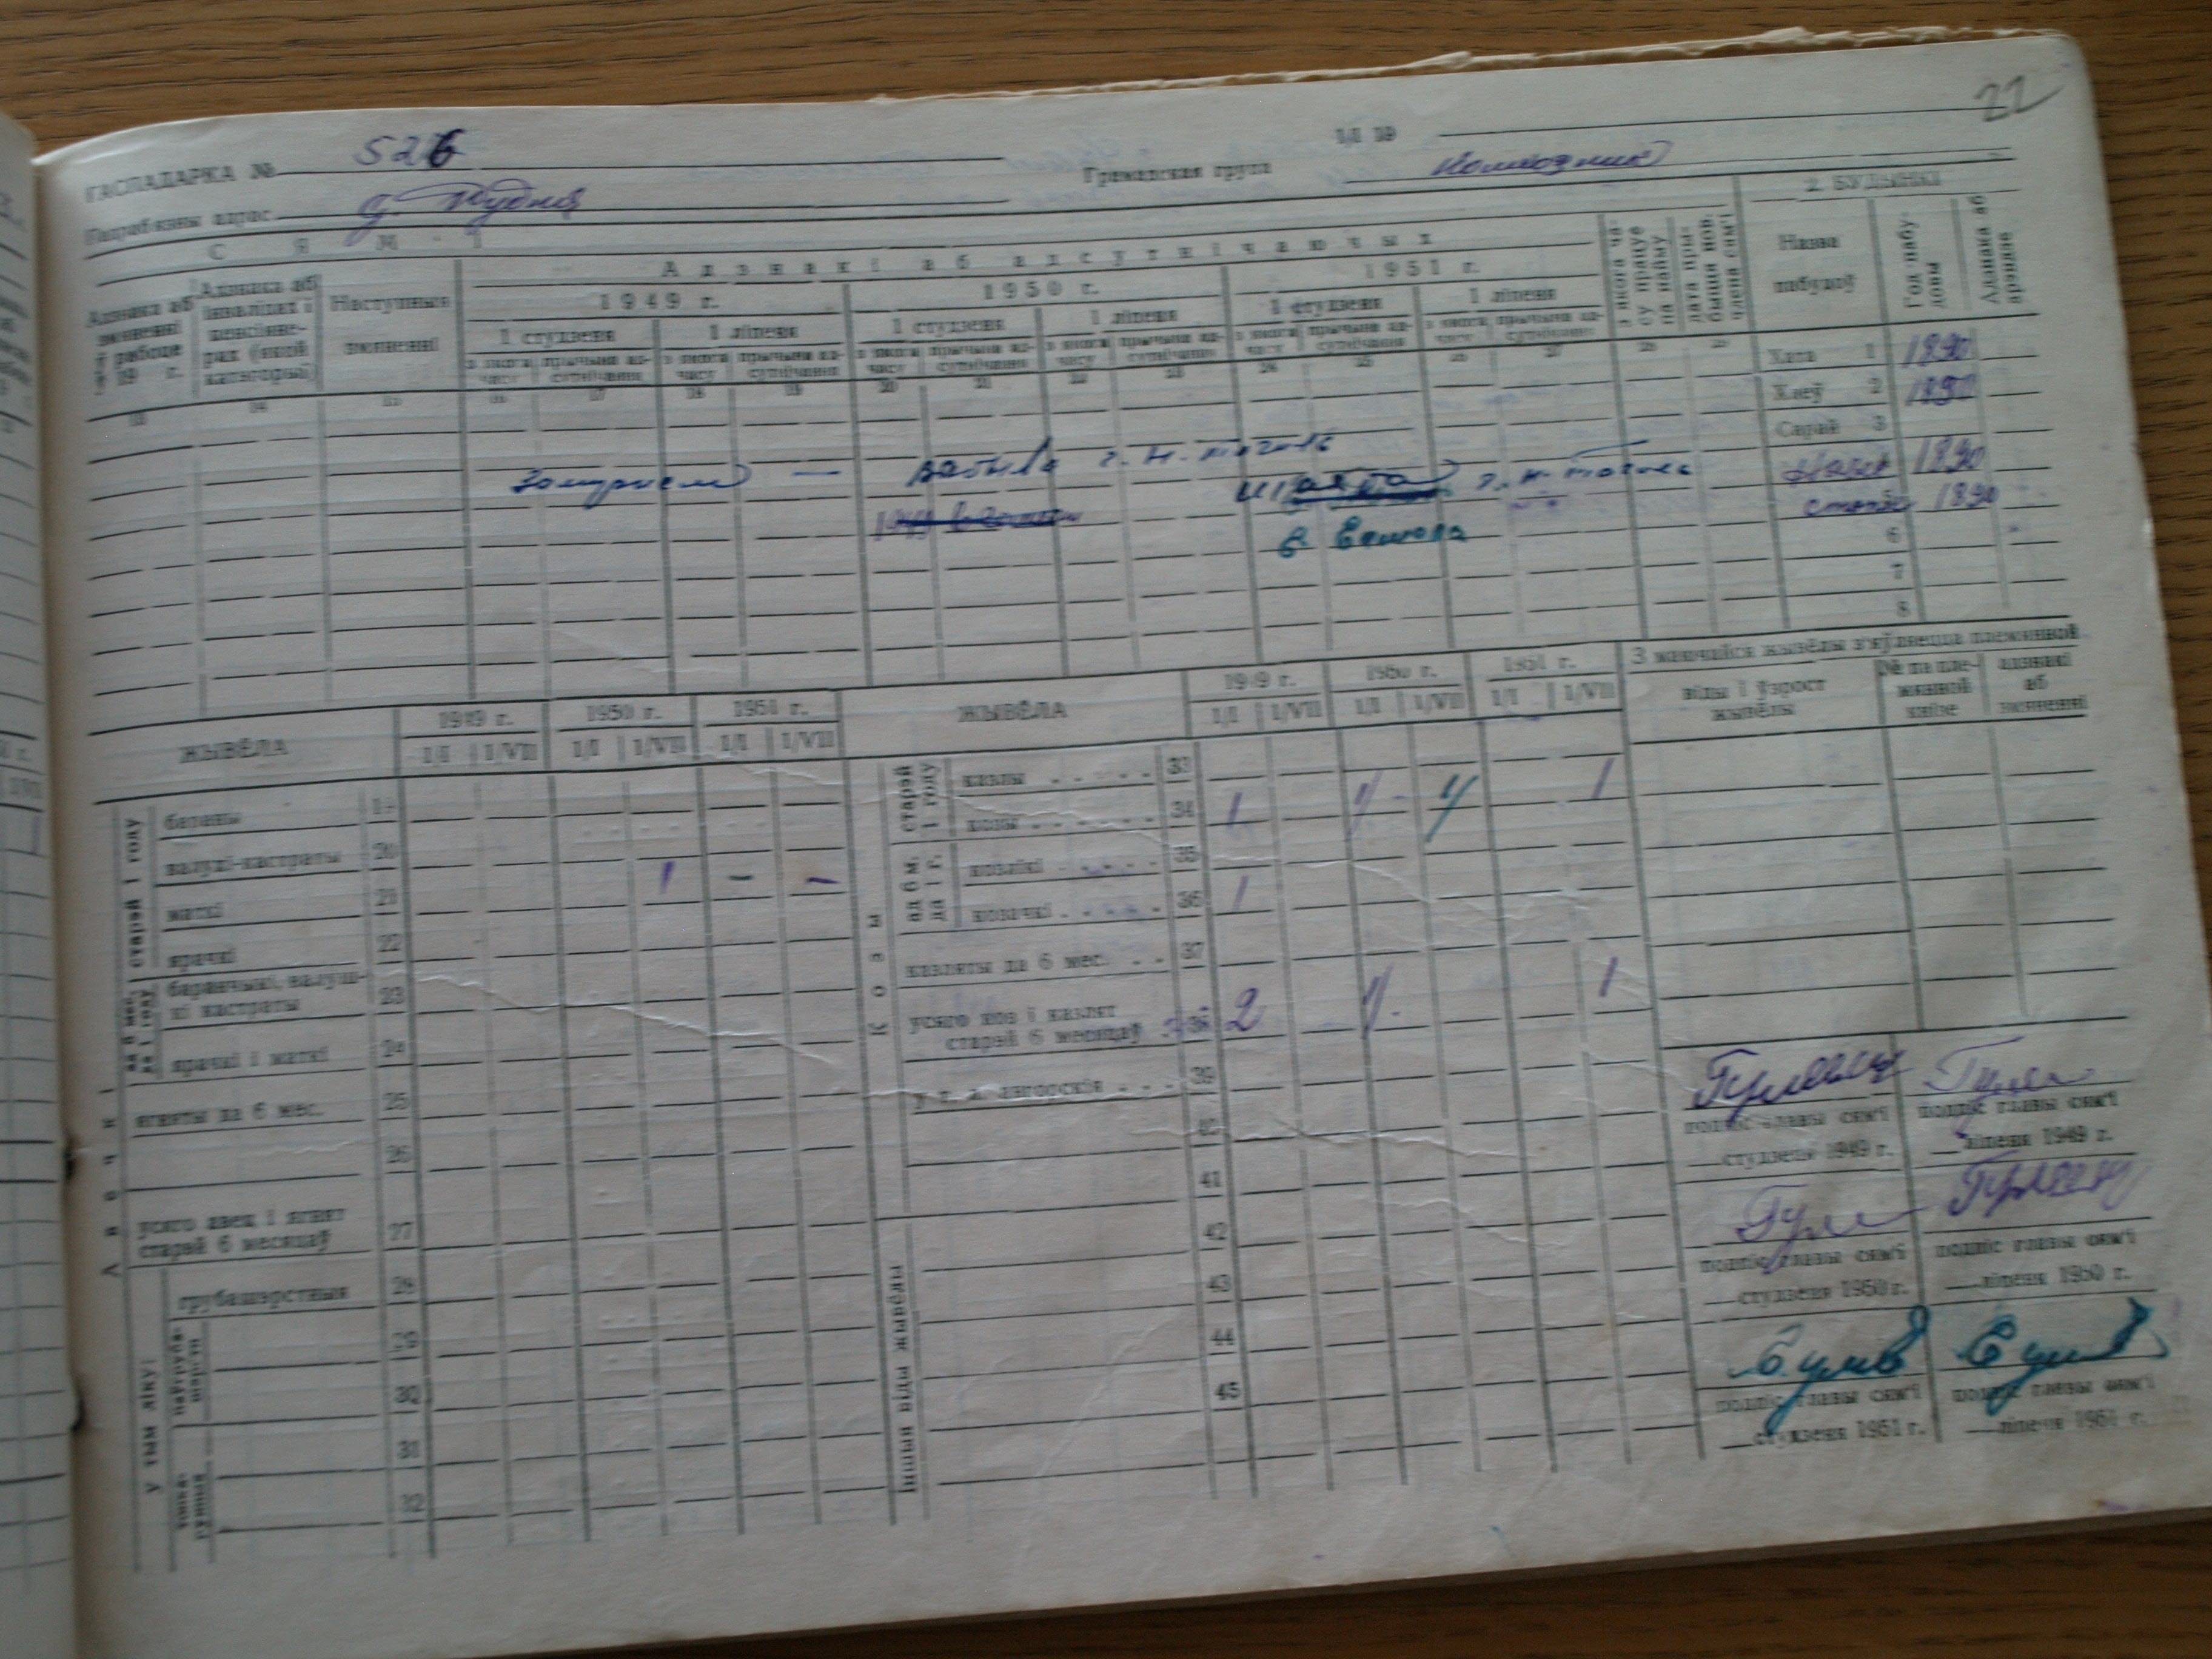 22
ГАСПАДАРКА № 526
1/I 19
Падрабязны адрас д. Рудня
Грамадская група Колхозник
С Я М
2. БУДЫНКІ
Адзнакі аб адсутнічаючых
Адзнака аб змяненні ў рабоце ў 19 г.
Адзнака аб інвалідах і пенсіянерах (якой катэгорыі)
Наступныя змяненні
1949 г. 1950 г. 1951 г.
1 студзеня 1 ліпеня 1 студзеня 1 ліпеня 1 студзеня 1 ліпеня
з якога часу прычына адсутнічання з якога часу прычына адсутнічання з якога часу прычына адсутнічання з якога часу прычына адсутнічання з якога часу прычына адсутнічання з якога часу прычына адсутнічання
з якога часу працуе па найму
дата прыбыцця нов. члена сям'і
Назва пабудоў
Год пабудовы
13 14 15 16 17 18 19 20 21 22 23 24 25 26 27 28 29
Хата 1 1890
Хлеў 2 1890
Сарай 3
1890
5 1890
замужем — выбыла
6
7
8
ЖЫВЁЛА 1949 г. 1950 г. 1951 г.
1/I 1/VII 1/I 1/VII 1/I 1/VII
ЖЫВЁЛА 1949 г. 1950 г. 1951 г.
1/I 1/VII 1/I 1/VII 1/I 1/VII
З маючайся жывёлы з'яўляецца племянной
віды і ўзрост жывёлы
№ па племянной кнізе
адзнакі аб змяненні
Авечкі
старэй 1 году
бараны 19
валухі-кастраты 20
маткі 21 1 — —
ярачкі 22
ад 6 мес. да 1 году
баранчыкі, валушкі кастраты 23
ярачкі і маткі 24
ягняты да 6 мес. 25
26
усяго авец і ягнят старэй 6 месяцаў 27
у тым ліку:
грубашэрстныя 28
29
30
31
32
Козы
старэй 1 году
казлы 33
козы 34 1 1 1 1
ад 6 м. да 1 г.
козлікі 35
козачкі 36 1
казляты да 6 мес. 37
усяго коз і казлят старэй 6 месяцаў 38 2 1 1
у т. л. ангорскія 39
40
41
іншыя віды жывёлы
42
43
44
45
подпіс главы сям'і подпіс главы сям'і
студзеня 1949 г. ліпеня 1949 г.
подпіс главы сям'і подпіс главы сям'і
студзеня 1950 г. ліпеня 1950 г.
подпіс главы сям'і подпіс главы сям'і
студзеня 1951 г. ліпеня 1951 г.